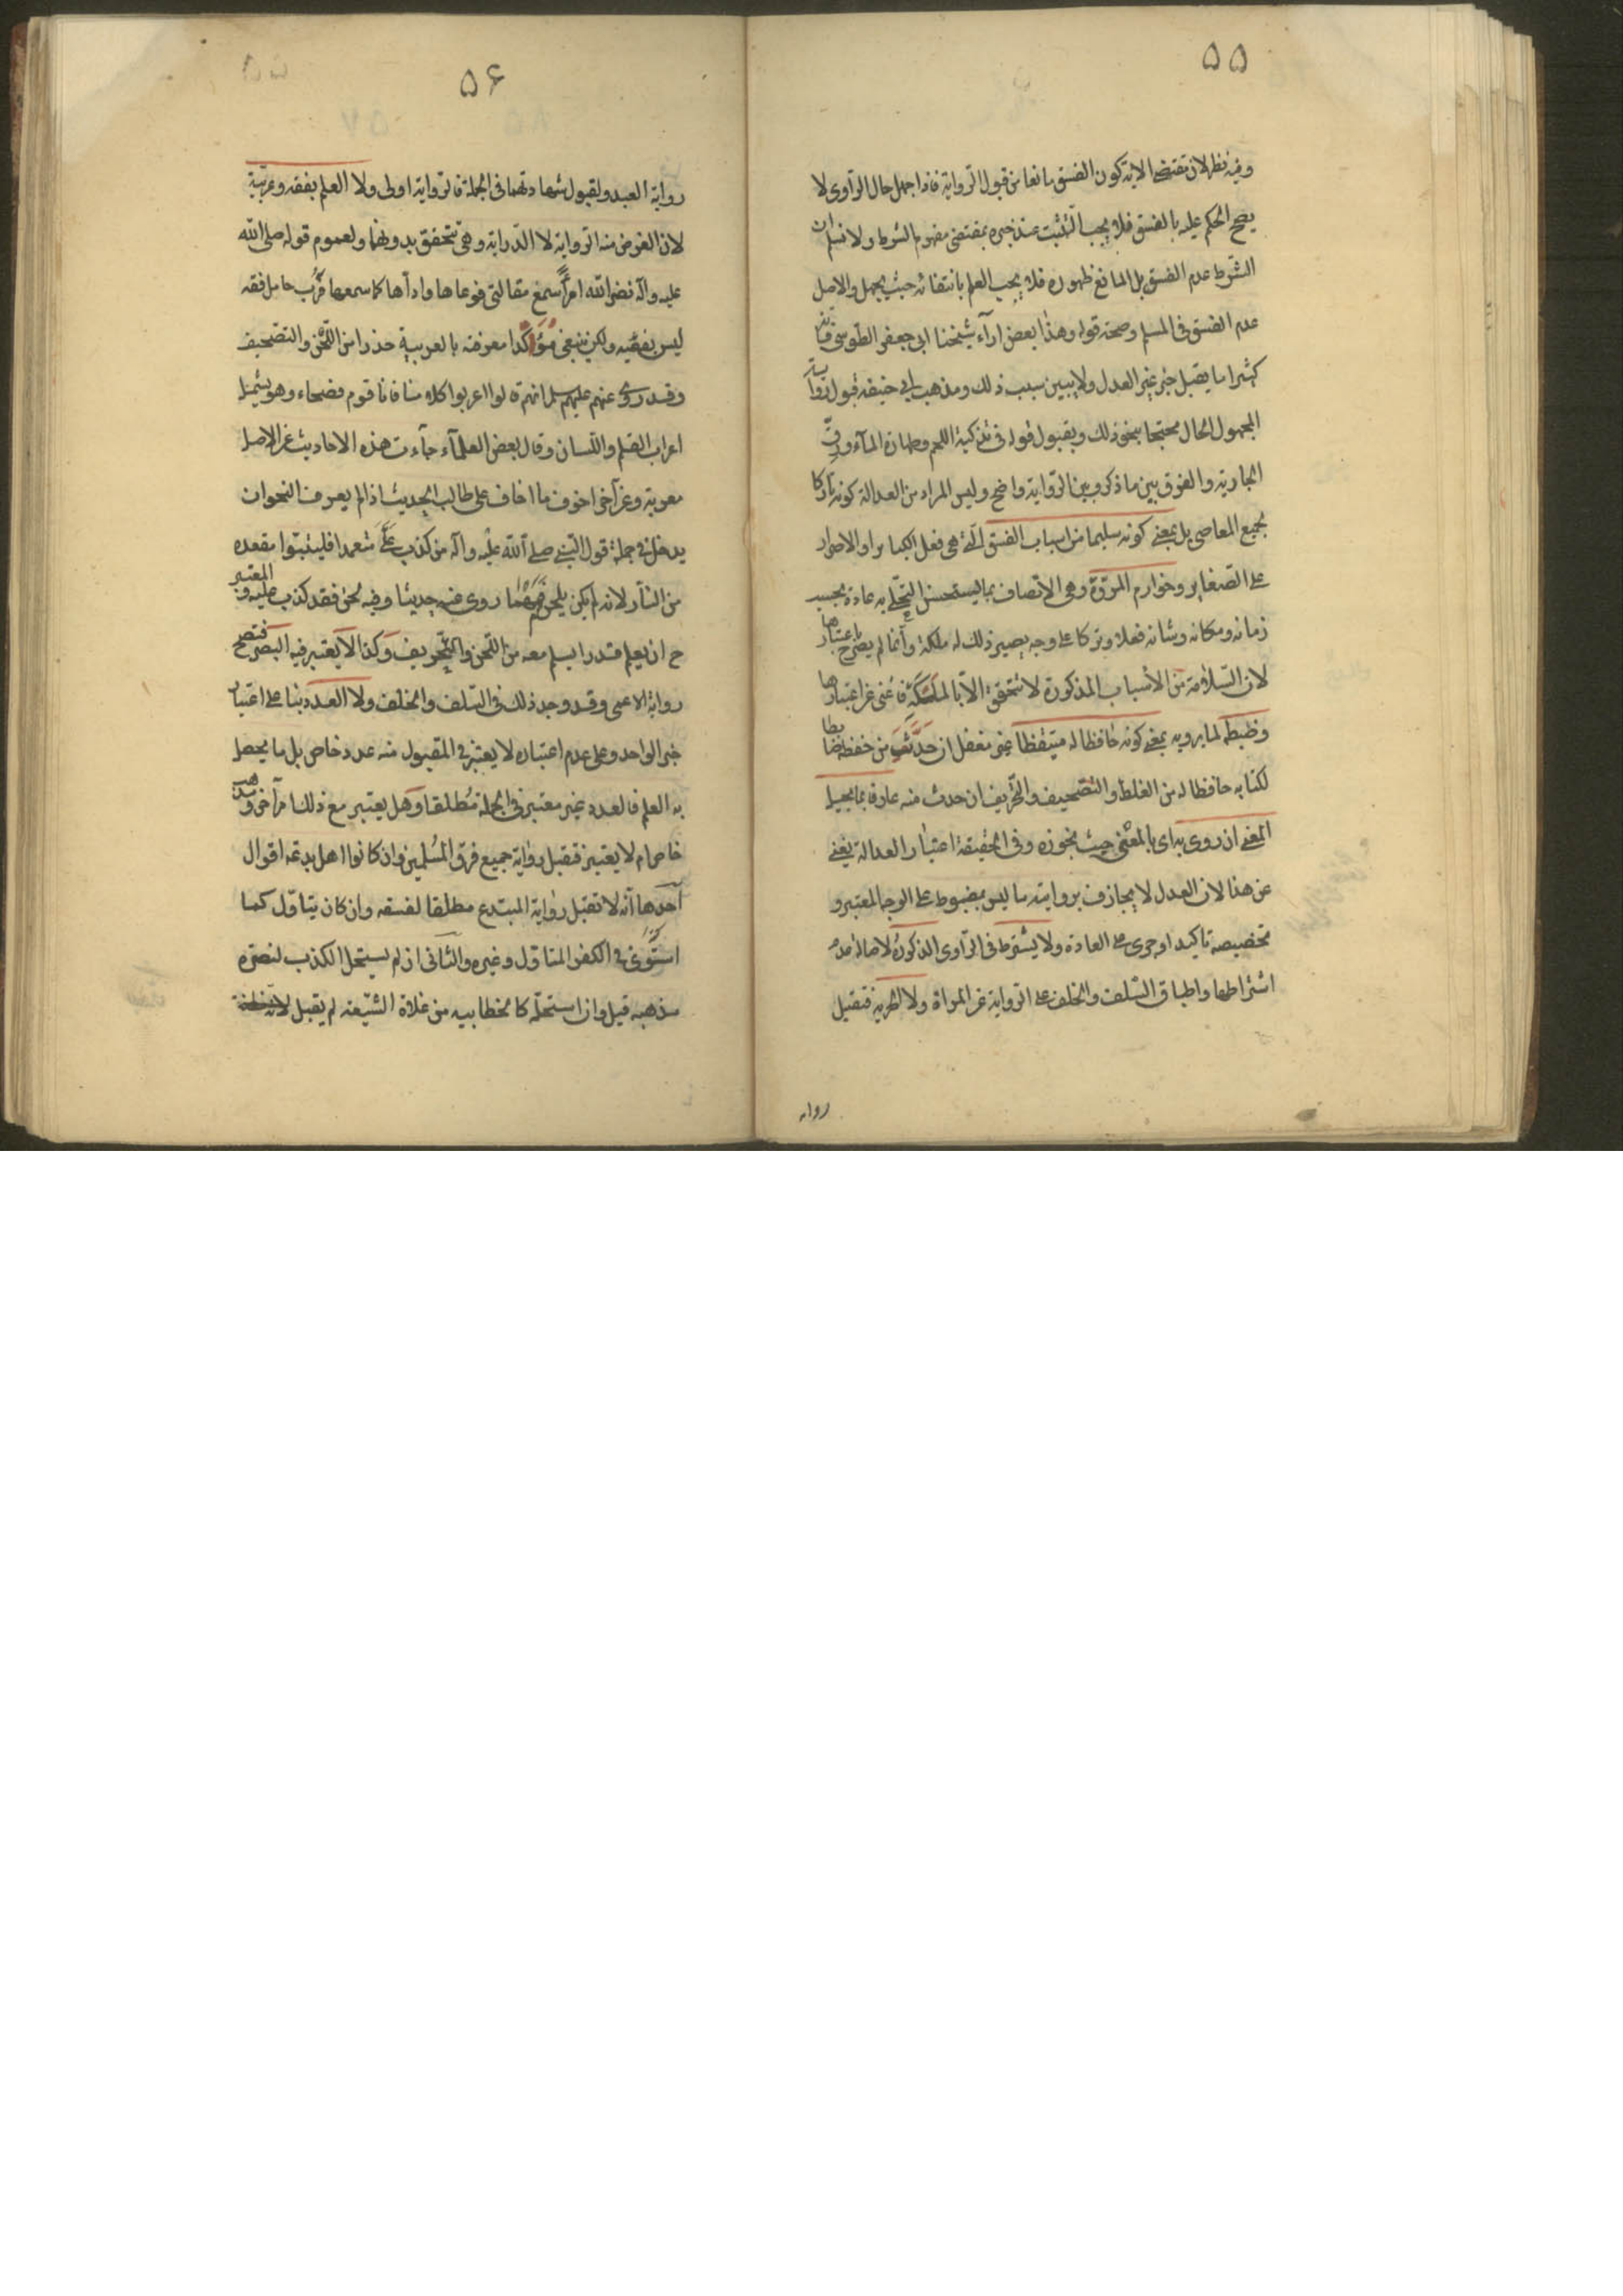 ۵۵
وفيه نظر لان مقتضى الاية كون الفسق مانعا من قبول الرواية فاذا جهل حال الراوى لا
يصح الحكم عليه بالفسق فلا يجب التثبت عند خبره بمقتضى مفهوم الشرط ولا نسلم ان
الشرط عدم الفسق بل المانع ظهوره فلا يجب العلم بانتفائه حيث يجهل والاصل
عدم الفسق فى المسلم وصحة قوله وهذا بعض اراء شيخنا ابى جعفر الطوسى فانه
كثيرا ما يقبل خبر غير العدل ولا يبين سبب ذلك ومذهب ابى حنيفة قبول رواية
المجهول الحال محتجا بنحو ذلك وبقبول قوله فى تذكية اللحم وطهارة الماء ورق
الجارية والفرق بين ما ذكر وبين الرواية واضح وليس المراد من العدالة كونه تاركا
لجميع المعاصى بل بمعنى كونه سليما من اسباب الفسق التى هى فعل الكبائر او الاصرار
على الصغاير وخوارم المروة وهى الاتصاف بما يستحسن التحلى به عادة بحسب
زمانه ومكانه وشانه فعلا وتركا على وجه يصير ذلك له ملكة وانما لم يصرح باعتبارها
لان السلامة من الأسباب المذكورة لا تتحقق الا بالملكة فاغنى عن اعتبارها
وضبطه لما يرويه بمعنى كونه حافظا له متيقظا غير مغفل ان حدث من حفظه ضابطا
لكتابه حافظا له من الغلط والتصحيف والتحريف ان حدث منه عارفا بما يحيل
المعنى ان روى به اى بالمعنى حيث نجوزه وفى الحقيقة اعتبار العدالة يغنى
عن هذا لان العدل لا يجازف برواية ما ليس بمضبوط على الوجه المعتبر و
تخصيصه تاكيد او جرى على العادة ولا يشترط فى الراوى الذكورة لاصالة عدم
اشتراطها واطباق السلف والخلف على الرواية عن المراة ولا الحرية فتقبل
روايه
۵۶
رواية العبد ولقبول شهادتهما فى الجملة فالرواية اولى ولا العلم بفقه وعربية
لان الغرض منه الرواية لا الدراية وهى تتحقق بدونهما ولعموم قوله صلى الله
عليه واله نضر الله امرأ سمع مقالتى فوعاها واداها كما سمعها فرب حامل فقه
ليس بفقيه ولكن ينبغى مؤكدا معرفته بالعربية حذرا من اللحن والتصحيف
وقد روى عنهم عليهم سلم انهم قالوا اعربوا كلامنا فانا قوم فصحاء وهو يشمل
اعراب القلم واللسان وقال بعض العلماء جاءت هذه الاحاديث عن الاصل
معربة وعن آخر اخوف ما اخاف على طالب الحديث اذا لم يعرف النحو ان
يدخل فى جملة قول النبى صلى الله عليه واله من كذب على متعمدا فليتبوا مقعده
من النار لانه لم يكن يلحن فمهما روى عنه حديثا وفيه لحن فقد كذب عليه والمعتبر
ح ان يعلم قدرا يسلم معه من اللحن والتحريف وكذا لا يعتبر فيه البصر فتصح
رواية الاعمى وقد وجد ذلك فى السلف والخلف ولا العدد بناء على اعتبار
خبر الواحد وعلى عدم اعتباره لا يعتبر فى المقبول منه عدد خاص بل ما يحصل
به العلم فالعدد غير معتبر فى الجملة مطلقا وهل يعتبر مع ذلك امر آخر ومذهب
خاص ام لا يعتبر فتقبل رواية جميع فرق المسلمين وان كانوا اهل بدعة اقوال
احدها انه لا تقبل رواية المبتدع مطلقا لفسقه وان كان يتاول كما
استوى فى الكفر المتاول وغيره والثانى ان لم يستحل الكذب لنصرة
مذهبه قبل وان استحله كالخطابيه من غلاة الشيعة لم يقبل